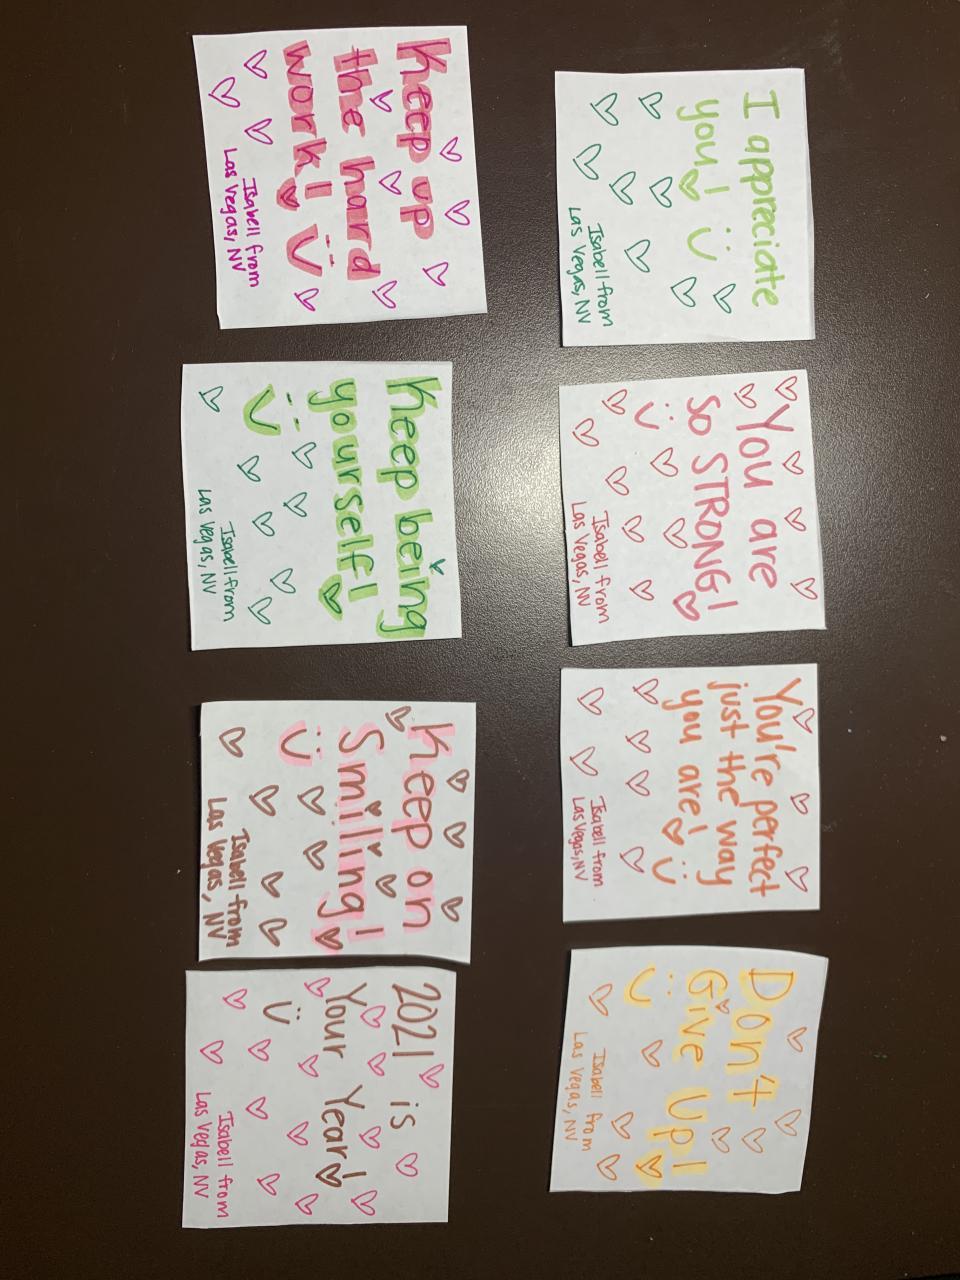 I appreciate
you!
Isabell from
Las Vegas, NV
You are
so STRONG!
Isabell from
Las Vegas, NV
You're perfect
just the way
you are!
Isabell from
Las Vegas, NV
Don't
Give Up!
Isabell from
Las Vegas, NV
Keep up
the hard
work!
Isabell from
Las Vegas, NV
Keep being
yourself!
Isabell from
Las Vegas, NV
Keep on
Smiling!
Isabell from
Las Vegas, NV
2021 is
Your Year!
Isabell from
Las Vegas, NV